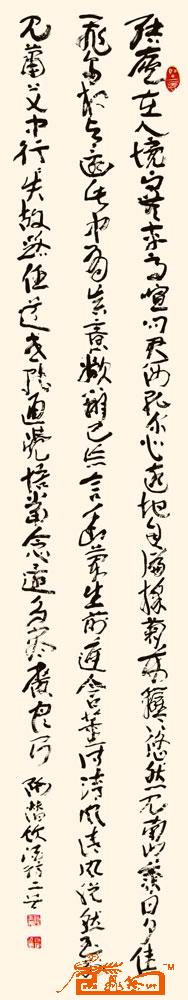 结庐在人境而无车马喧问君何能尔心远地自偏采菊东篱下悠然见南山山气日夕佳
飞鸟相与还此中有真意欲辨已忘言幽兰生前庭含薰待清风清风脱然至
见别萧艾中行行失故路任道或能通觉悟当念还鸟尽废良弓
陶潜饮酒诗二首